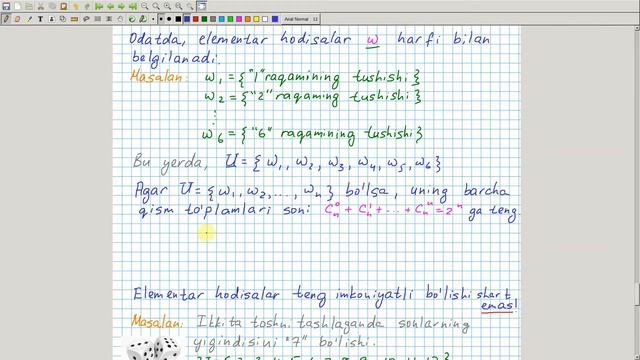 Odatda, elementar hodisalar w harfi bilan
belgilanadi.
Masalan: w₁ = {"1" raqamining tushishi}
w₂ = {"2" raqaming tushishi}
⋮
w₆ = {"6" raqaming tushishi}
Bu yerda, U = {w₁, w₂, w₃, w₄, w₅, w₆}
Agar U = {w₁, w₂, ..., wₙ} bo'lsa, uning barcha
qism to'plamlari soni Cₙ⁰ + Cₙ¹ + ... + Cₙⁿ = 2ⁿ ga teng.
Elementar hodisalar teng imkoniyatli bo'lishi shart
emas!
Masalan: Ikkita toshni tashlaganda sonlarning
yigindisini "7" bo'lishi.